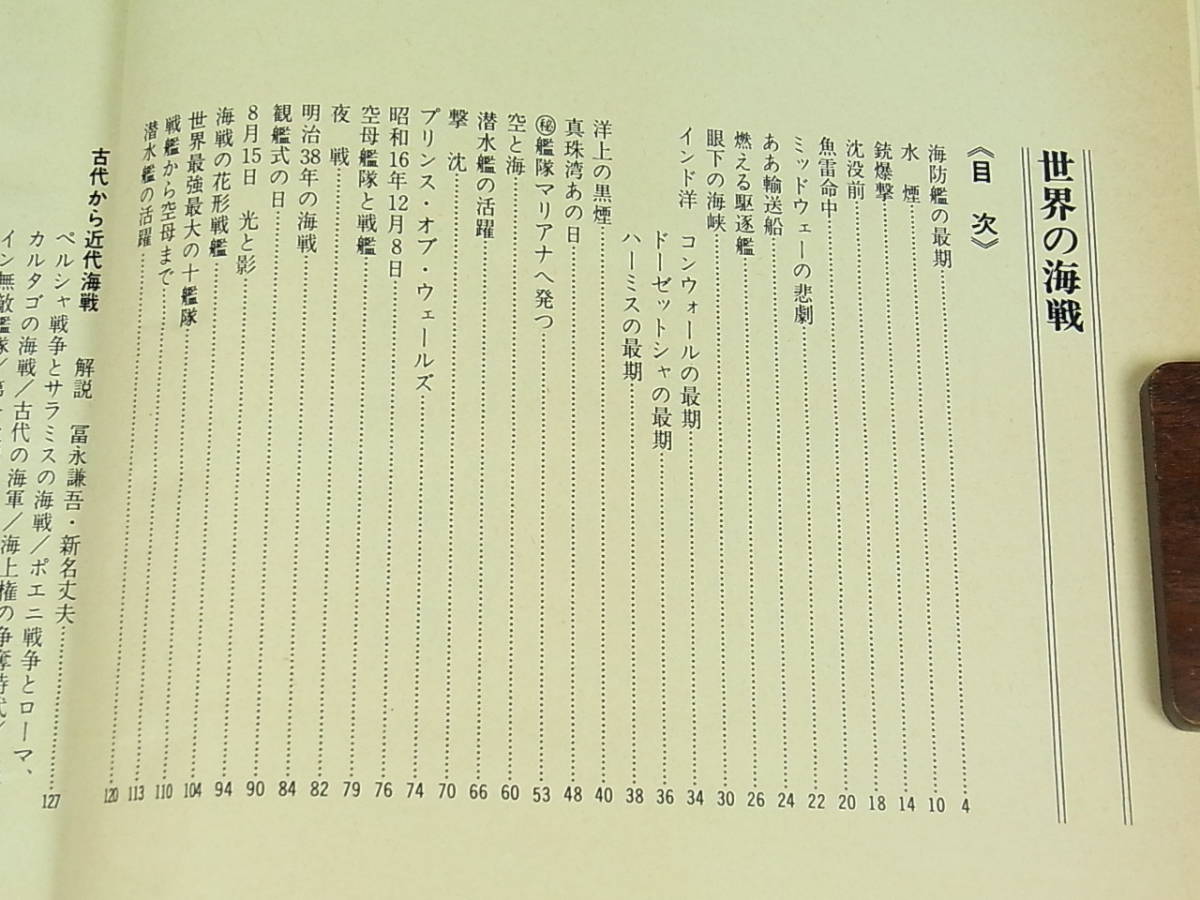 世界の海戦
《目次》
海防艦の最期……4
水煙……10
銃爆撃……14
沈没前……18
魚雷命中……20
ミッドウェーの悲劇……22
ああ輸送船……24
燃える駆逐艦……26
眼下の海峡……30
インド洋 コンウォールの最期……34
ドーゼットシャの最期……36
ハーミスの最期……38
洋上の黒煙……40
真珠湾あの日……48
㊙艦隊マリアナへ発つ……53
空と海……60
潜水艦の活躍……66
撃沈……70
プリンス・オブ・ウェールズ……74
昭和16年12月8日……76
空母艦隊と戦艦……79
夜戦……82
明治38年の海戦……84
観艦式の日……90
8月15日 光と影……94
海戦の花形戦艦……104
世界最強最大の十艦隊……110
戦艦から空母まで……113
潜水艦の活躍……120
古代から近代海戦
解説 冨永謙吾・新名丈夫……127
ペルシャ戦争とサラミスの海戦/ポエニ戦争とローマ、
カルタゴの海戦/古代の海軍/海上権の争奪時代/
イン無敵艦隊/